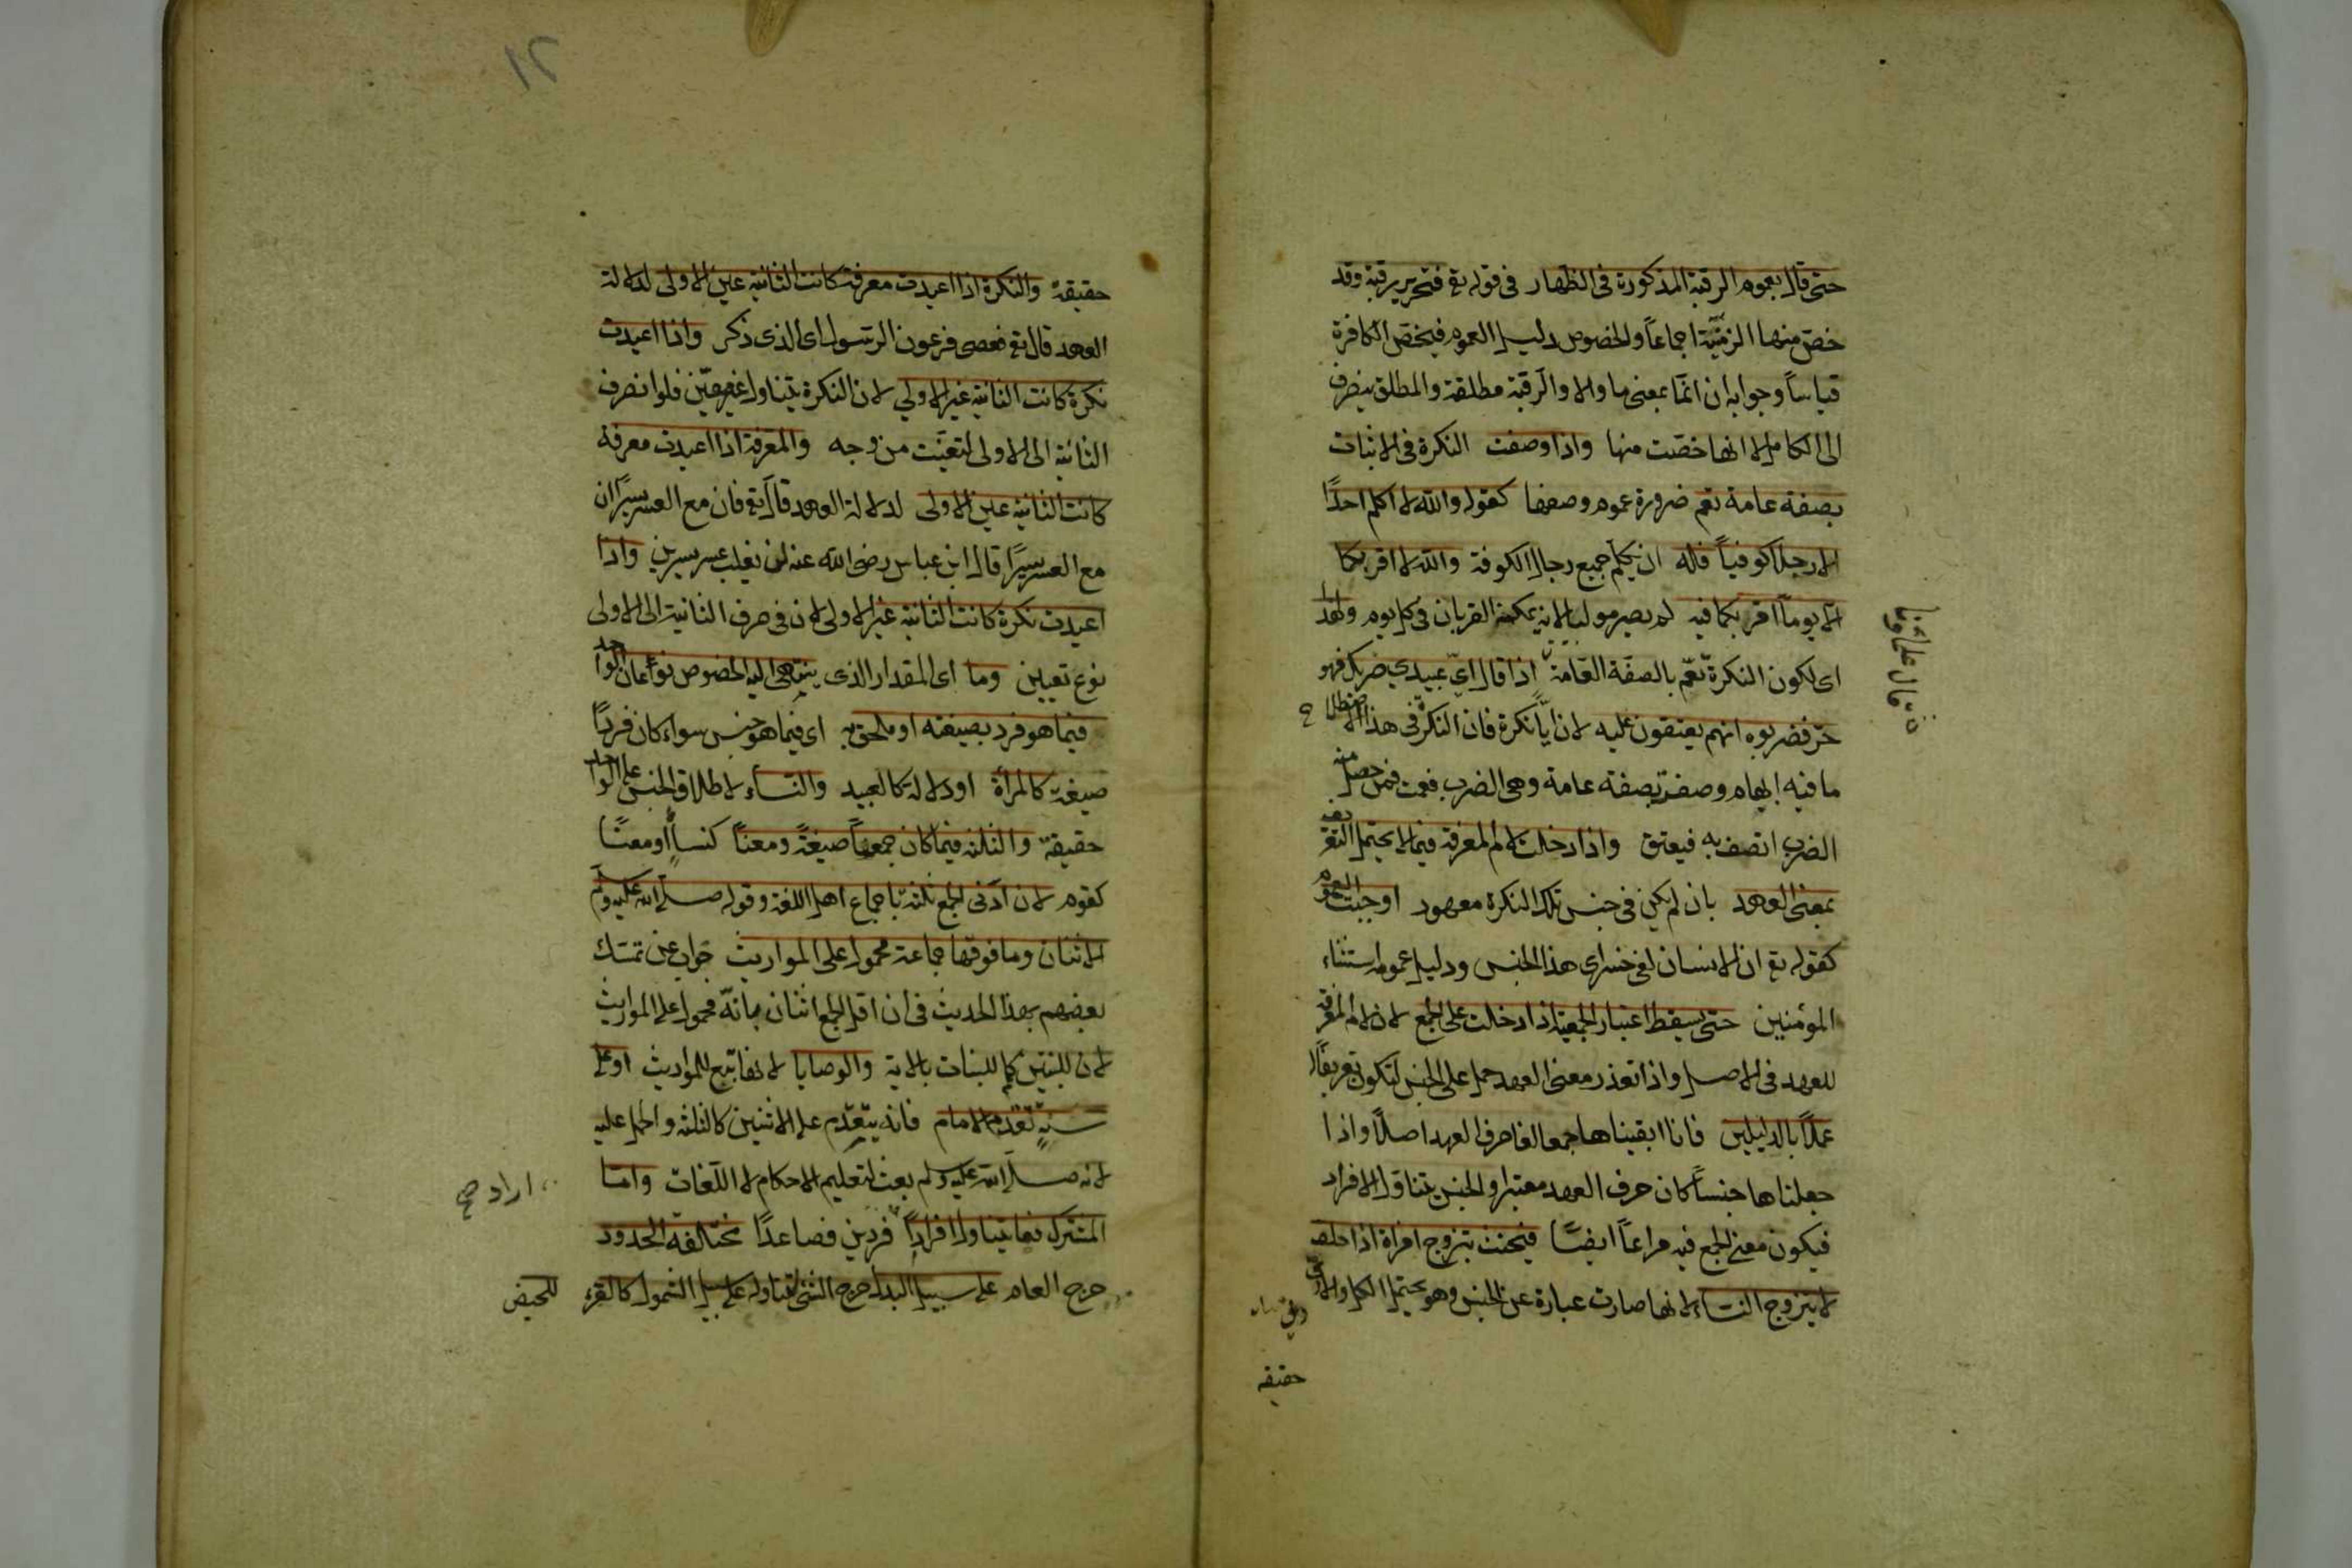 حتى قال بعموم الرقبة المذكورة فى الظهار فى قوله تع فتحرير رقبة وقد
خص منها الزمنة اجماعاً والخصوص دليل العموم فيخص الكافرة
قياساً وجوابه ان انما بمعنى ما والا والرقبة مطلقة والمطلق ينصرف
الى الكامل لا انها خصت منها واذا وصفت النكرة فى الاثبات
بصفة عامة تعم ضرورة عموم وصفها كقوله والله لا اكلم احدًا
الا رجلا كوفياً فله ان يكلم جميع رجال الكوفة والله لا اقربكما
الا يوماً اقربكما فيه لم يصر موليا لانه يمكنه القربان فى كل يوم ولهذا
اى لكون النكرة تعم بالصفة العامة اذا قال اىّ عبيدي ضربك فهو
حرّ فضربوه انهم يعتقون عليه لان ايًّا نكرة فان النكرة فى هذا الاصطلاح
ما فيه ابهام وصفت بصفة عامة وهى الضرب فعمت فمن حصل منه
الضرب اتصف به فيعتق واذا دخلت لام المعرفة فيما لا يحتمل التعريف
بمعنى العهد بان لم يكن فى جنس تلك النكرة معهود اوجبت العموم
كقوله تع ان الانسان لفى خسر اى هذا الجنس ودليل عمومه استثناء
المؤمنين حتى يسقط اعتبار الجمعية اذا دخلت على الجمع لان لام المعرفة
للعهد فى الاصل واذا تعذر معنى العهد حمل على الجنس لتكون تعريفًا
عملاً بالدليلين فانا ابقيناها جمعا لغا حرف العهد اصلاً واذا
جعلناها جنساً كان حرف العهد معتبرا والجنس يتناول الافراد
فيكون معنى الجمع فيه مراعاً ايضاً فيحنث بتزوج امراة اذا حلف
لا يتزوج النساء لانها صارت عبارة عن الجنس وهو يحتمل الكل والادنى
حقيقة
١٢
حقيقة والنكرة اذا اعيدت معرفة كانت الثانية عين الاولى لدلالة
العهد قال تع فعصى فرعون الرسول اى الذى ذكر واذا اعيدت
نكرة كانت الثانية غير الاولي لان النكرة يتناول غير معيّن فلو انصرف
الثانية الى الاولى لتعيّنت من وجه والمعرفة اذا اعيدت معرفة
كانت الثانية عين الاولى لدلالة العهد قال تع فان مع العسر يسرًا ان
مع العسر يسرًا قال ابن عباس رضى الله عنه لن يغلب عسر يسرين واذا
اعيدت نكرة كانت الثانية غير الاولى لان فى صرف الثانية الى الاولى
نوع تعيين وما اى المقدار الذى ينتهى اليه الخصوص نوعان الواحد
فيما هو فرد بصيغته او ملحق به اى فيما هو جنس سواء كان فردًا
صيغة كالمرأة او دلالة كالعبيد والنساء لاطلاق الجنس على الواحد
حقيقة والثلثة فيما كان جمعاً صيغةً ومعناً كنساءٍ او معنًا
كقوم لان ادنى الجمع ثلثة باجماع اهل اللغة وقوله صلى الله عليه وسلم
الاثنان وما فوقها جماعة محمول على المواريث جواب عن تمسك
بعضهم بهذا الحديث فى ان اقل الجمع اثنان بانّه محمول على المواريث
لان للبنتين كما للبنات بالاية والوصايا لانها تتبع المواريث او على
سنة تقدم الامام فانه يتقدّم على الاثنين كالثلثة والحمل عليه
لانه صلى الله عليه وسلم بعث لتعليم الاحكام لا اللغات واما
المشترك فما يتناول افراداً فردين فصاعدًا مختلفة الحدود
خرج العام على سبيل البدل خرج الشئ لتناوله على سبيل الشمول كالقرء للحيض
اراد صح